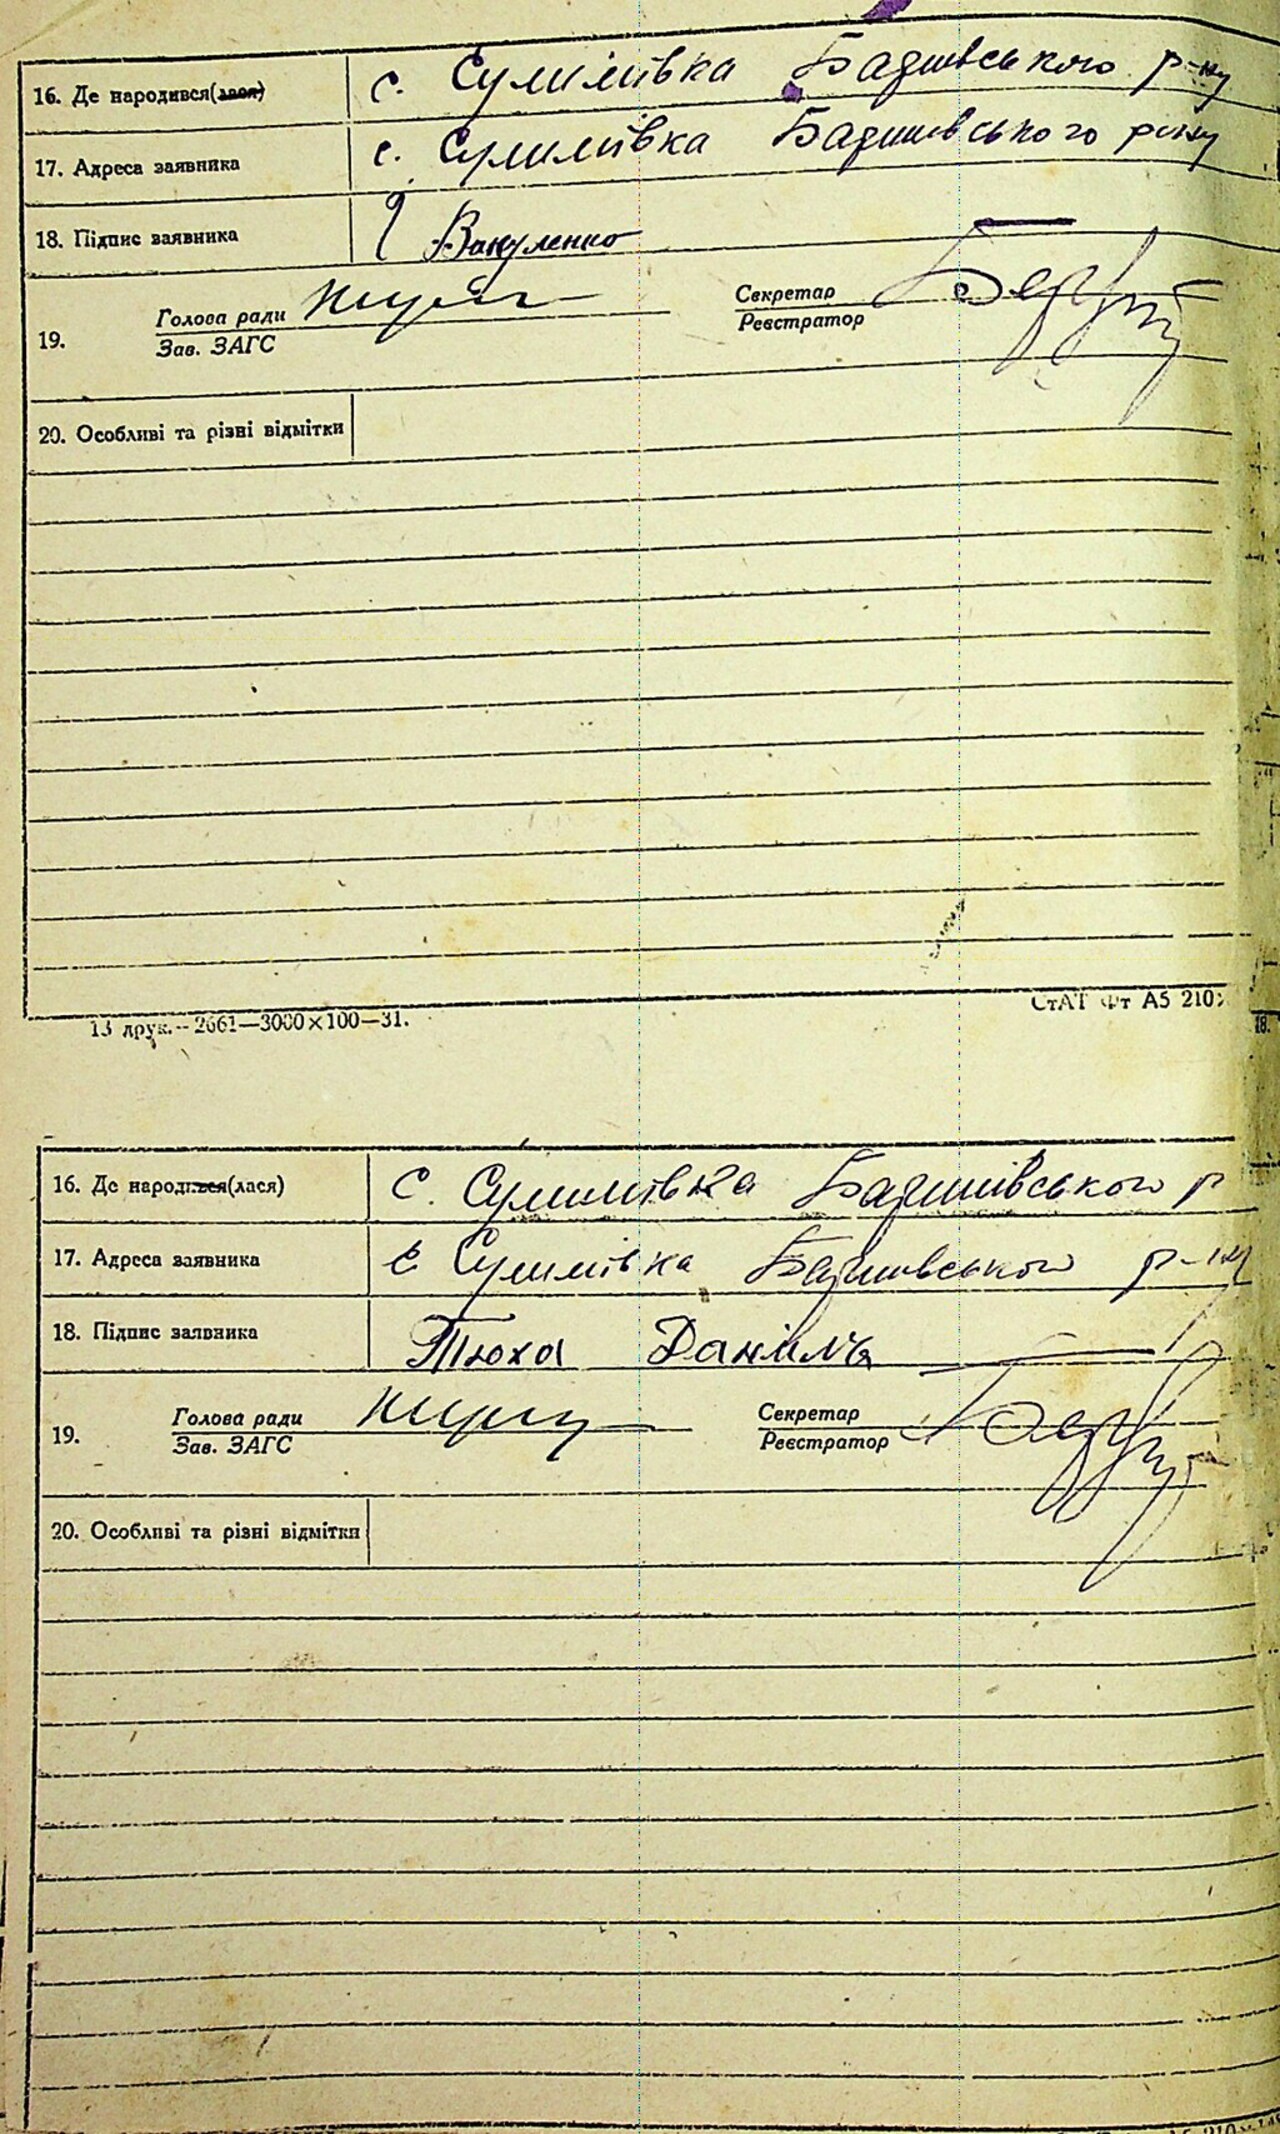 16. Де народився(лася) с. Сулимівка Баришівського р-ну
17. Адреса заявника с. Сулимівка Баришівського р-ну
18. Підпис заявника Вакуленко
19. Голова ради Секретар
Зав. ЗАГС Реєстратор
20. Особливі та різні відмітки
13 друк.—2661—3000×100—31. СтАТ Фт А5 210
18.
16. Де народився(лася) С. Сулимівка Баришівського р
17. Адреса заявника с Сулимівка Баришівського р-ну
18. Підпис заявника Тюха Данило
19. Голова ради Секретар
Зав. ЗАГС Реєстратор
20. Особливі та різні відмітки